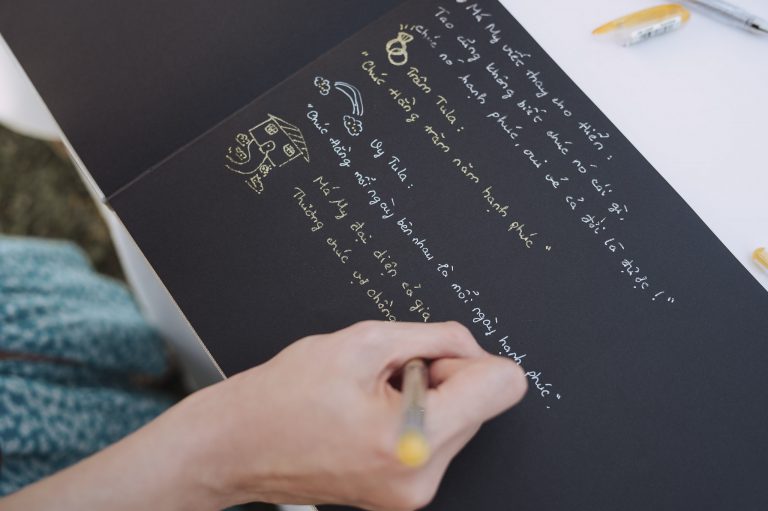 Má My viết thay cho Hiển:
Tao cũng không biết chúc nó cái gì,
chúc nó hạnh phúc, vui vẻ cả đời là được!"
Trâm Tula:
"Chúc Hằng trăm năm hạnh phúc"
Vy Tula:
"Chúc Hằng mỗi ngày bên nhau là mỗi ngày hạnh phúc".
Má My đại diện cả gia
Thương chúc vợ chồng